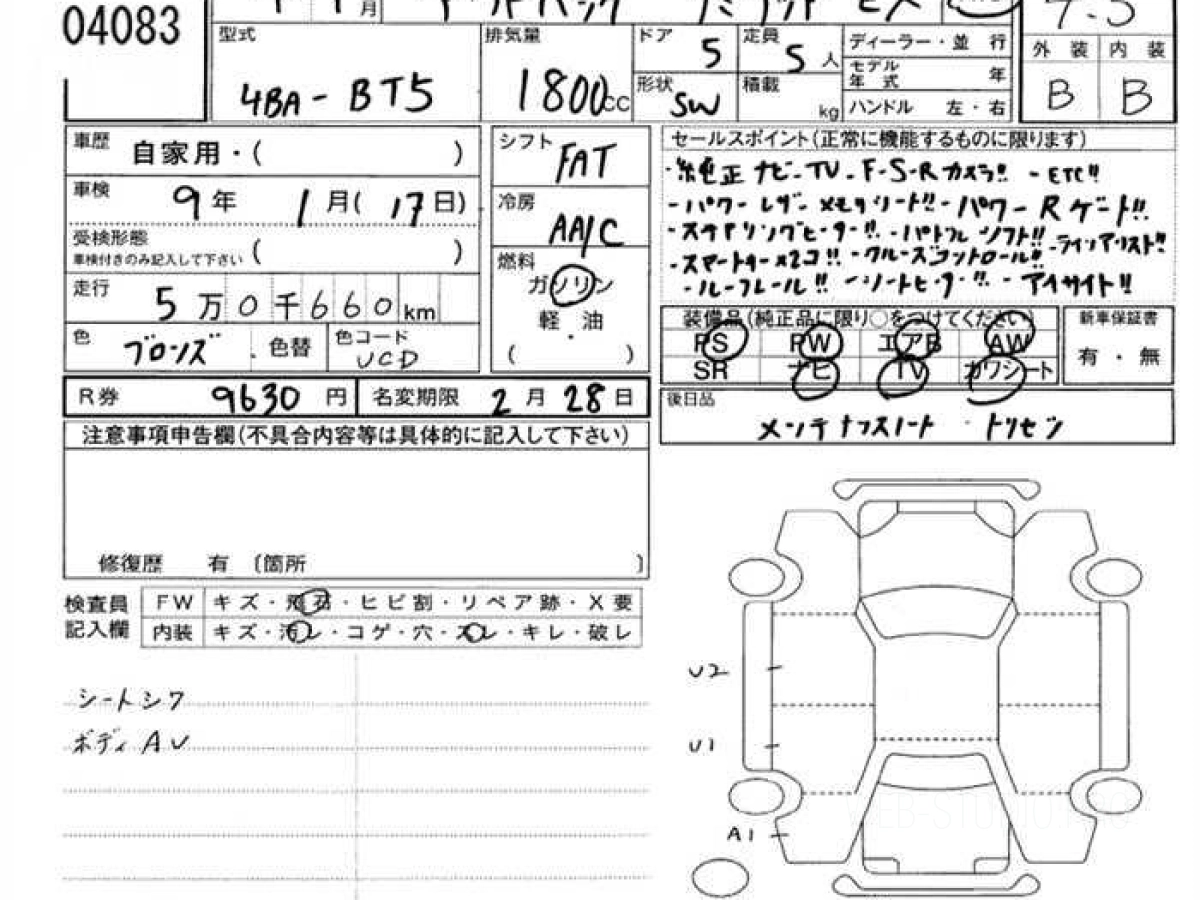 04083
月
型式 4BA-BT5
排気量 1800cc
ドア 5
定員 5人
形状 SW
積載 kg
ディーラー・並行
モデル年式 年
ハンドル 左・右
4.5
外装 内装
B B
車歴 自家用・( )
車検 9年 1月(17日)
受検形態
車検付きのみ記入して下さい ( )
走行 5万0千660km
色 ブロンズ 色替
色コード VCD
シフト FAT
冷房 AA/C
燃料
ガソリン
・
軽油
( )
R券 9630円 名変期限 2月28日
セールスポイント(正常に機能するものに限ります)
・純正ナビ-TV-F-S-Rカメラ!! -ETC!!
-パワーレザーメモリシート!! -パワーRゲート!!
-ステアリングヒーター!! -パドルシフト!!
-ラインアシスト!!
-スマートキー×2コ!! -クルーズコントロール!!
-ルーフレール!! -シートヒーター!! -アイサイト!!
装備品(純正品に限り○をつけてください)
PS PW エアB AW
SR ナビ TV カワシート
新車保証書
有・無
後日品
メンテナンスノート トリセツ
注意事項申告欄(不具合内容等は具体的に記入して下さい)
修復歴 有 〔箇所 〕
検査員
記入欄
FW キズ・飛石・ヒビ割・リペア跡・X要
内装 キズ・汚レ・コゲ・穴・スレ・キレ・破レ
シートシワ
ボディAU
U2
U1
A1